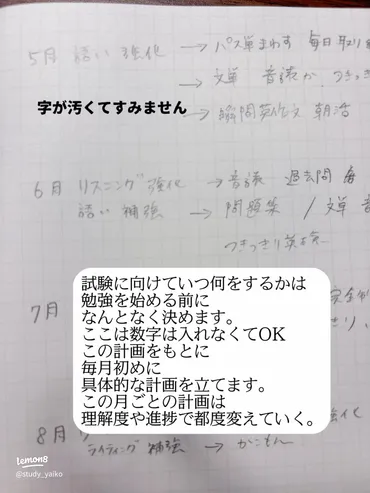 5月 語い強化 → パス単まわす 毎日
→ 文単 音読
字が汚くてすみません
→ 瞬間英作文 朝活
6月 リスニング強化 → 音読 過去問 毎
語い補強 → 問題集 / 文単 音
つきっきり英検
試験に向けていつ何をするかは
勉強を始める前に
なんとなく決めます。
ここは数字は入れなくてOK
この計画をもとに
毎月初めに
具体的な計画を立てます。
この月ごとの計画は
理解度や進捗で都度変えていく。
7月
強化
8月
ライティング補強 → かこもん
lemon8
@study_yaiko